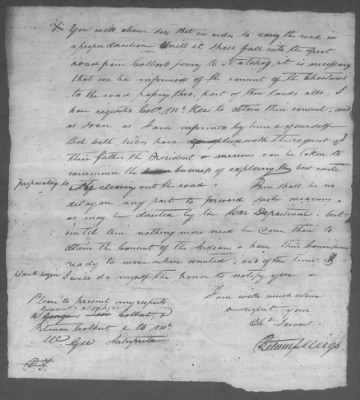 X You will please see that in order to carry the road in
a proper direction untill it shall fall into the great
road from Colbert ferry to Natchez, it is necessary
that we be informed of the consent of the Choctaws
to the road passing thro, part of their lands also. I
have requested Colo. Mc Kee to obtain this consent, and
as soon as I am informed by him & yourself
that both tribes have complied with the request of
their father the President, measures can be taken to
commence the business of exploring the best route
preparatory to clearing out the road. There shall be no
delay on my part to forward such measures
as may be directed by the War Department, but
until then nothing more need be done than to
obtain the Consent of the Indians & have their
ready to work when wanted, and of the time
I will do myself the honor to notify you
I am with much esteem
& respect your
Obt Servant
Return J Meigs
Please to present my respects
to Major
Colbert &
Colbert & to Mr
Mc Gee Interpreter